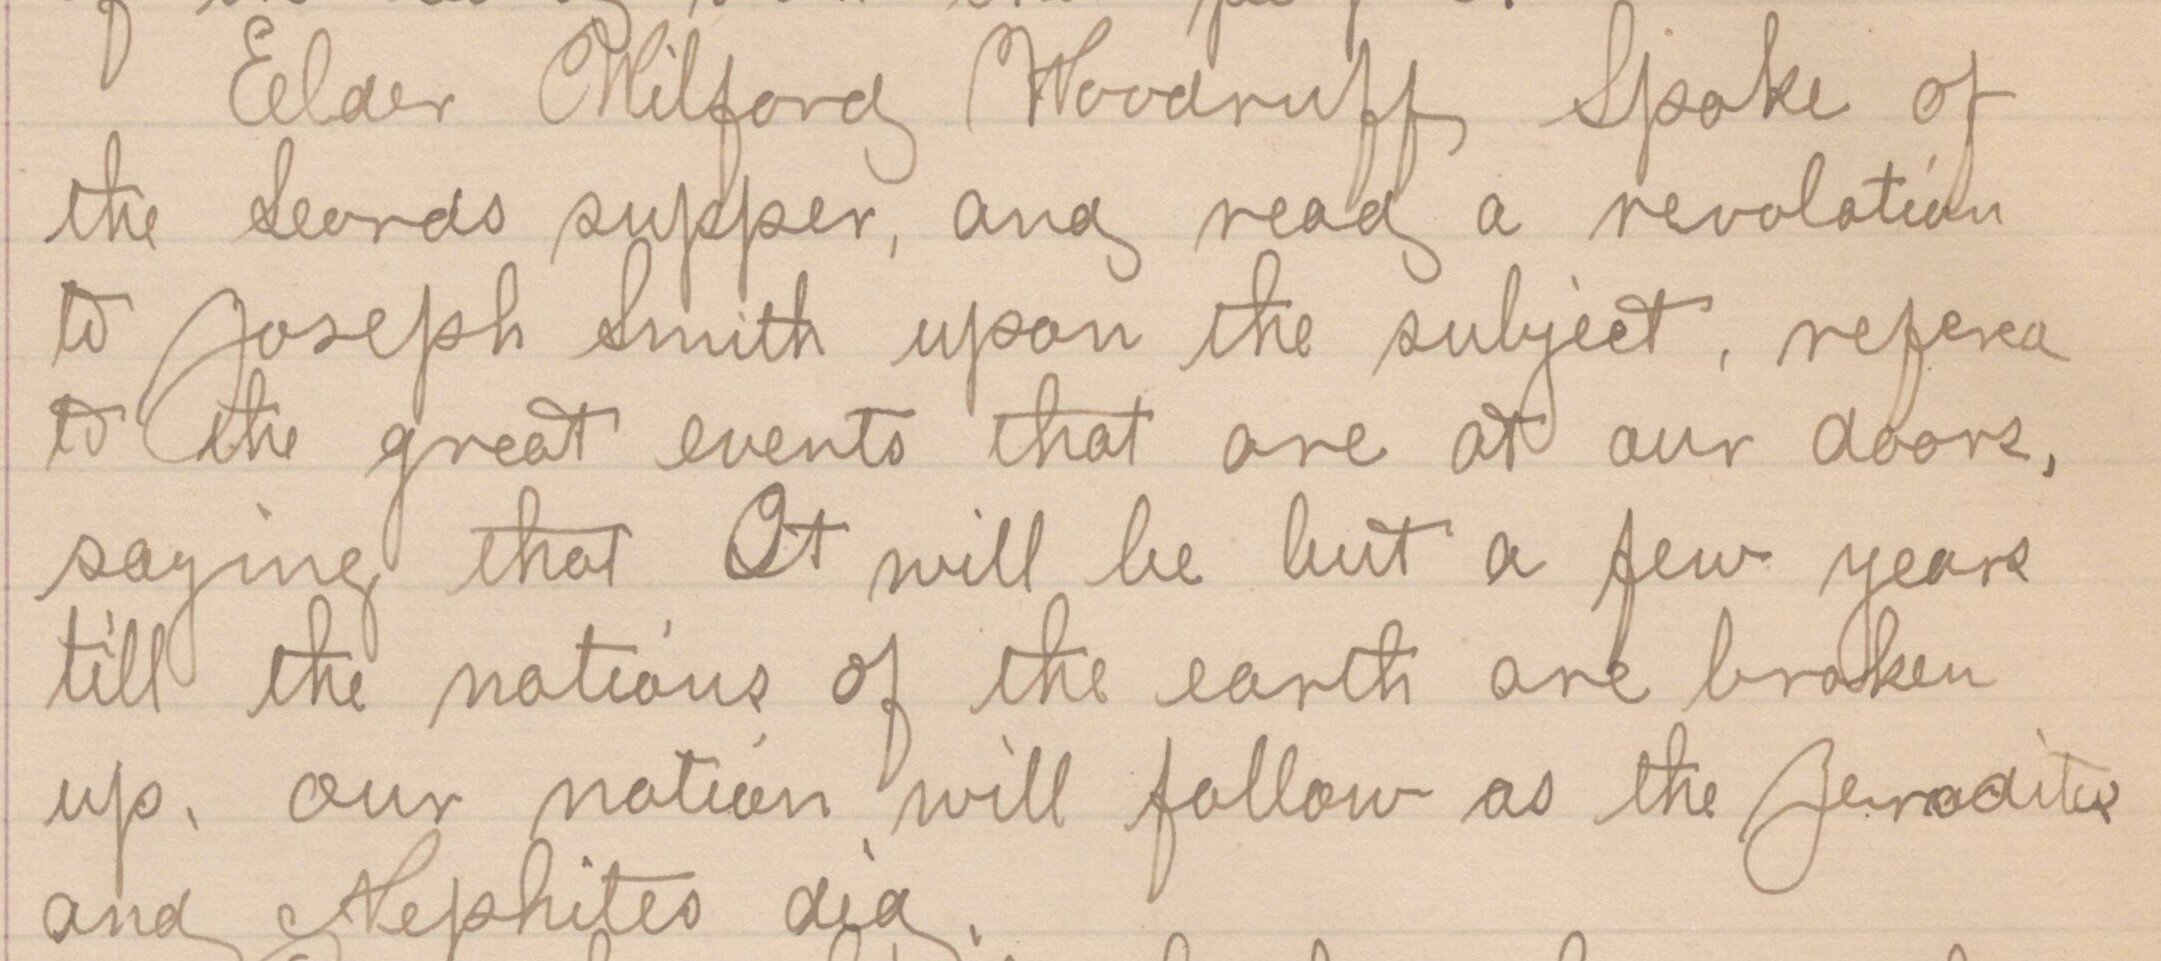 Eelder Wilford Woodruff Spoke of
the Leords supper, and read a revolation
to Joseph Smith upon the subject, refered
to the great events that are at our doors,
saying that It will be but a few years
till the nations of the earth are broken
up, our nation will follow as the Jeradites
and Nephites did.